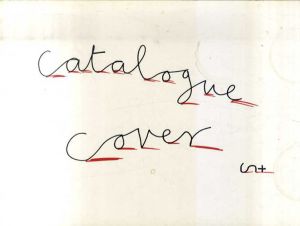 Catalogue
Cover